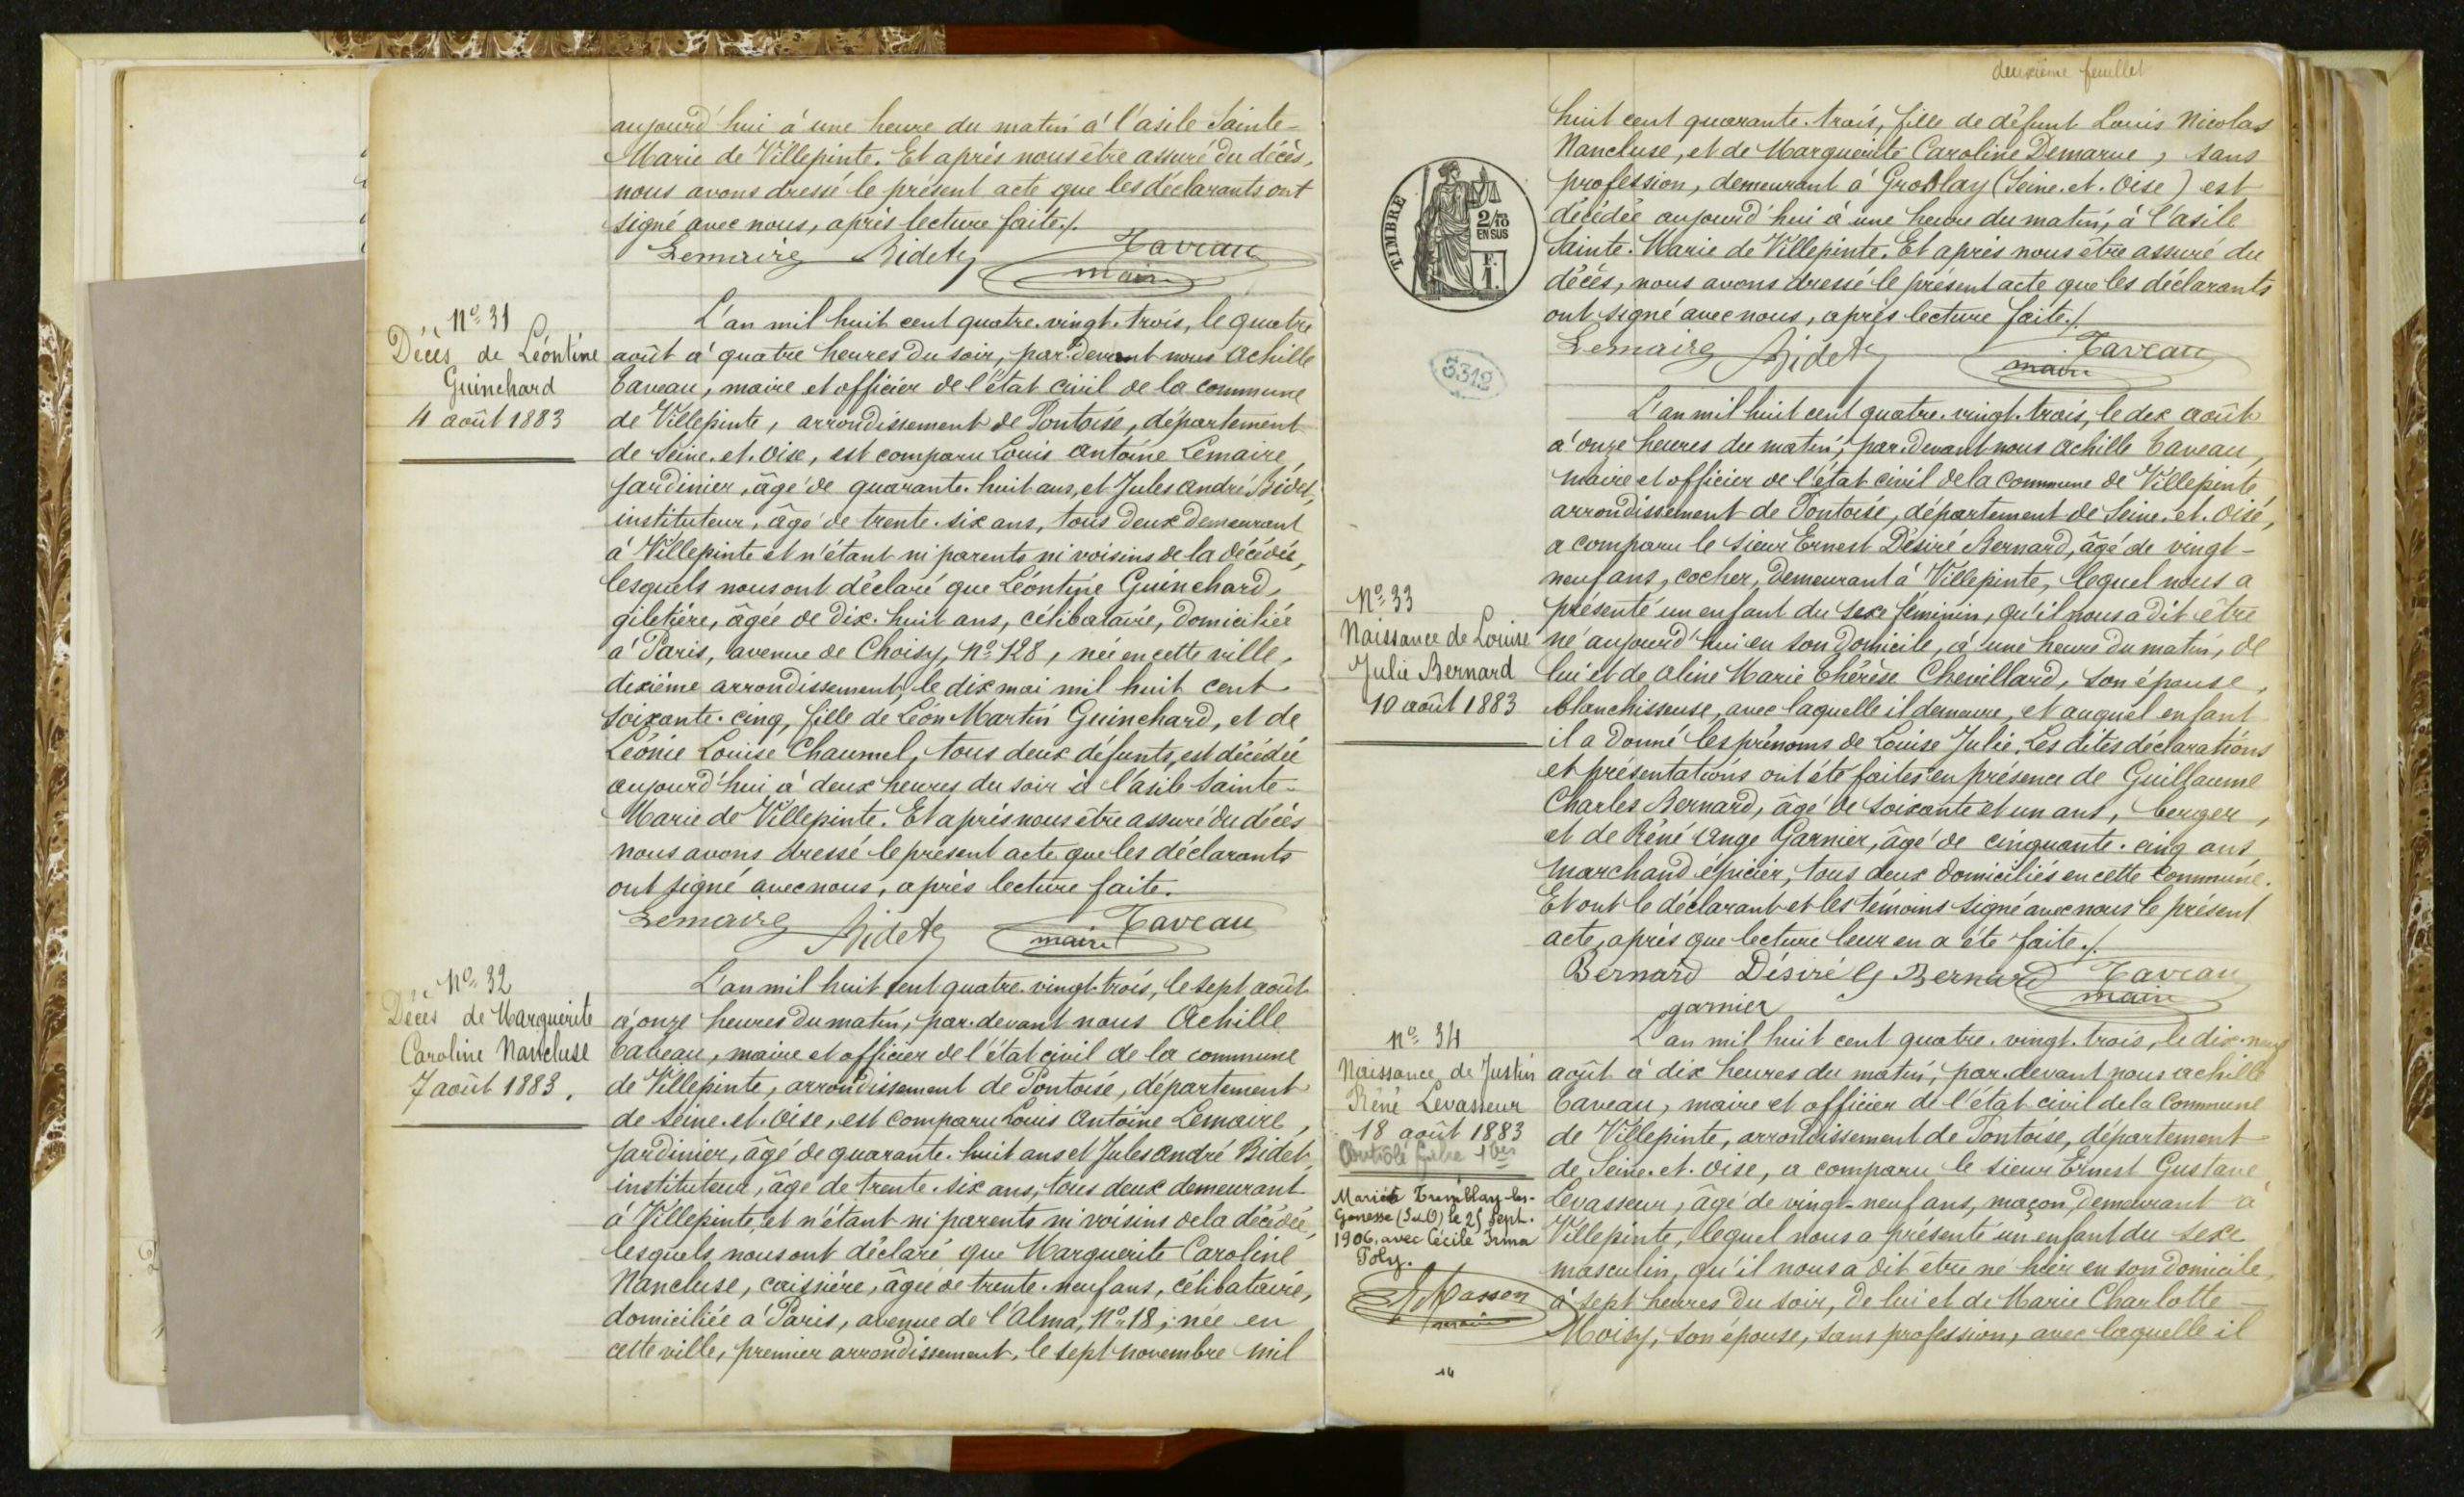 aujourd'hui à une heure du matin à l'asile Sainte-
Marie de Villepinte. Et après nous être assuré du décès,
nous avons dressé le présent acte que les déclarants ont
signé avec nous, après lecture faite./.
Lemaire Bidet Taveau
maire
N° 31
Décès de Léontine
Guinchard
4 août 1883
L'an mil huit cent quatre-vingt-trois, le quatre
août à quatre heures du soir, par-devant nous Achille
Taveau, maire et officier de l'état civil de la commune
de Villepinte, arrondissement de Pontoise, département
de Seine-et-Oise, est comparu Louis Antoine Lemaire,
jardinier, âgé de quarante-huit ans, et Jules André Bidet,
instituteur, âgé de trente-six ans, tous deux demeurant
à Villepinte et n'étant ni parents ni voisins de la décédée,
lesquels nous ont déclaré que Léontine Guinchard,
giletière, âgée de dix-huit ans, célibataire, domiciliée
à Paris, avenue de Choisy, N° 128, née en cette ville,
dixième arrondissement, le dix mai mil huit cent
soixante-cinq, fille de Léon Martin Guinchard, et de
Léonie Louise Chaumel, tous deux défunts, est décédée
aujourd'hui à deux heures du soir à l'asile Sainte-
Marie de Villepinte. Et après nous être assuré du décès
nous avons dressé le présent acte que les déclarants
ont signé avec nous, après lecture faite.
Lemaire Bidet Taveau
maire
N° 32
Décès de Marguerite
Caroline Nancluse
7 août 1883.
L'an mil huit cent quatre-vingt-trois, le sept août
à onze heures du matin, par-devant nous Achille
Taveau, maire et officier de l'état civil de la commune
de Villepinte, arrondissement de Pontoise, département
de Seine-et-Oise, est comparu Louis Antoine Lemaire,
jardinier, âgé de quarante-huit ans et Jules André Bidet
instituteur, âgé de trente-six ans, tous deux demeurant
à Villepinte, et n'étant ni parents ni voisins de la décédée,
lesquels nous ont déclaré que Marguerite Caroline
Nancluse, caissière, âgée de trente-neuf ans, célibataire,
domiciliée à Paris, avenue de l'Alma, N° 18, née en
cette ville, premier arrondissement, le sept novembre mil
deuxième feuillet
huit cent quarante-trois, fille de défunt Louis Nicolas
Nancluse, et de Marguerite Caroline Demarue, sans
profession, demeurant à Groslay (Seine-et-Oise) est
décédée aujourd'hui à une heure du matin, à l'asile
Sainte-Marie de Villepinte. Et après nous être assuré du
décès, nous avons dressé le présent acte que les déclarants
ont signé avec nous, après lecture faite./.
Lemaire Bidet Taveau
maire
TIMBRE
2/10
EN SUS
F.
1.
3312
N° 33
Naissance de Louise
Julie Bernard
10 août 1883
L'an mil huit cent quatre-vingt-trois, le dix août
à onze heures du matin, par-devant nous Achille Taveau,
maire et officier de l'état civil de la commune de Villepinte
arrondissement de Pontoise, département de Seine-et-Oise,
a comparu le sieur Ernest Désiré Bernard, âgé de vingt-
neuf ans, cocher, demeurant à Villepinte, lequel nous a
présenté un enfant du sexe féminin, qu'il nous a dit être
né aujourd'hui en son domicile, à une heure du matin, de
lui et de Aline Marie Thérèse Chevillard, son épouse,
blanchisseuse, avec laquelle il demeure, et auquel enfant
il a donné les prénoms de Louise Julie. Les dites déclarations
et présentations ont été faites en présence de Guillaume
Charles Bernard, âgé de soixante et un ans, berger,
et de Réné Ange Garnier, âgé de cinquante-cinq ans
marchand épicier, tous deux domiciliés en cette commune.
Et ont le déclarant et les témoins signé avec nous le présent
acte, après que lecture leur en a été faite./.
Bernard Désiré G Bernard Taveau
garnier maire
N° 34
Naissance de Justin
Réné Levasseur
18 août 1883
Marié à Tremblay-les-
Gonesse (S et O) le 25 Sept.
1906, avec Cécile Irma
Poly.
Masson
maire
14
L'an mil huit cent quatre-vingt-trois, le dix-neuf
août à dix heures du matin, par-devant nous Achille
Taveau, maire et officier de l'état civil de la commune
de Villepinte, arrondissement de Pontoise, département
de Seine-et-Oise, a comparu le sieur Ernest Gustave
Levasseur, âgé de vingt-neuf ans, maçon, demeurant à
Villepinte, lequel nous a présenté un enfant du sexe
masculin, qu'il nous a dit être né hier en son domicile,
à sept heures du soir, de lui et de Marie Charlotte
Moisy, son épouse, sans profession, avec laquelle il